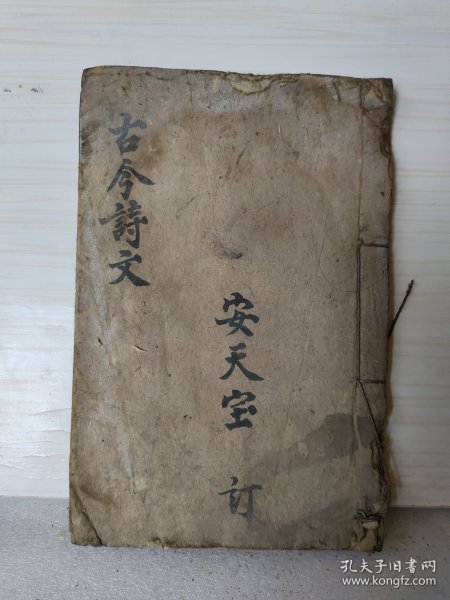 古今詩文
安天宝 訂
孔夫子旧书网
www.kongfz.com